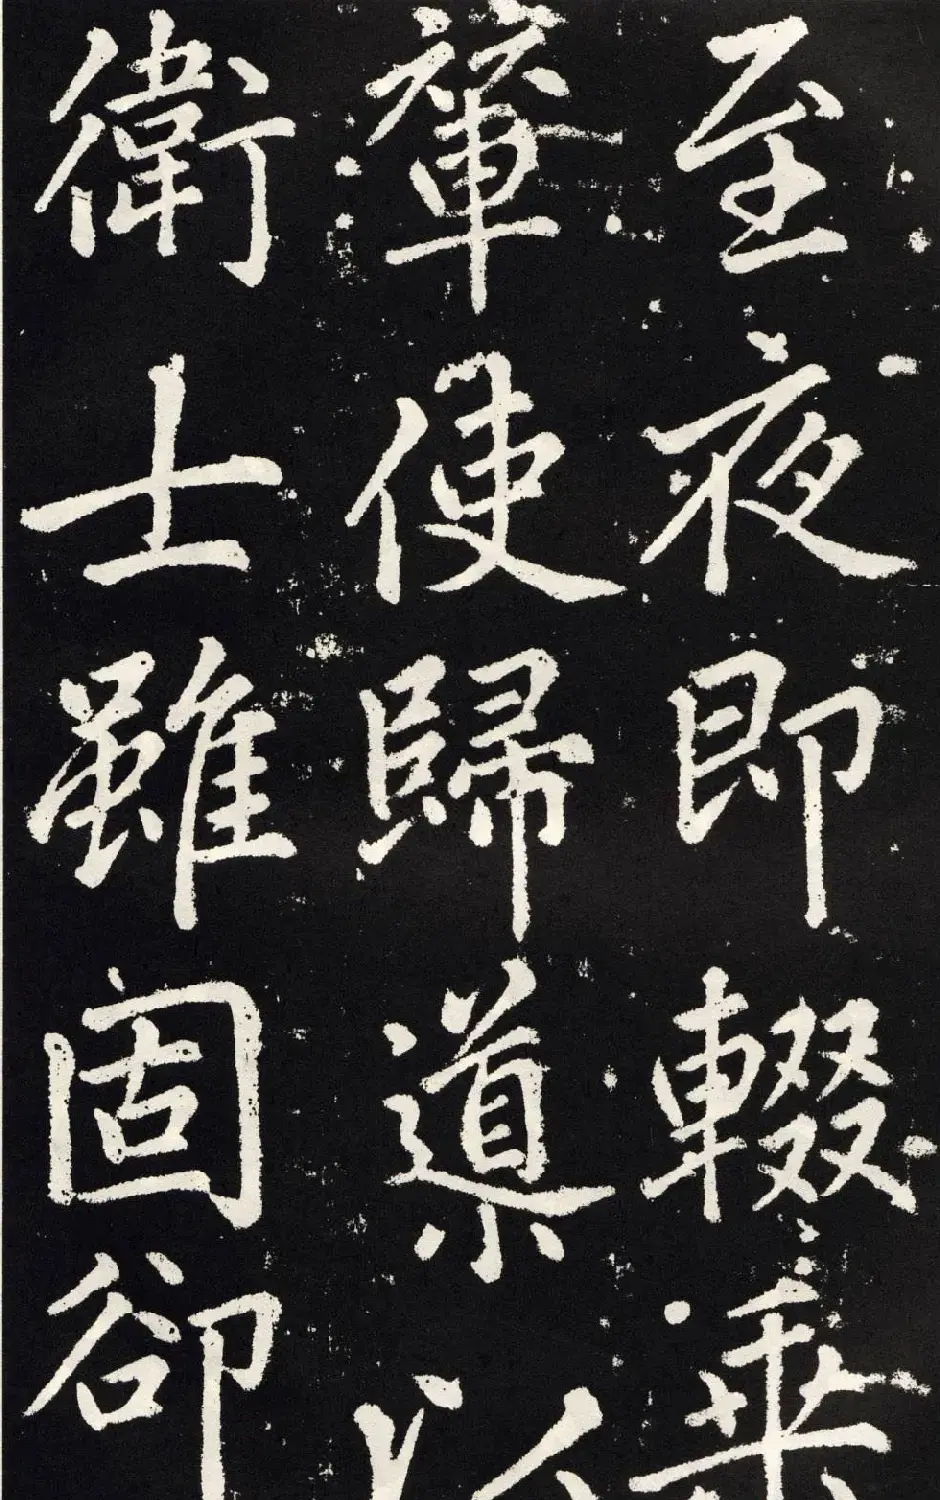 至夜即輟乗
輦使歸導以
衛士雖固卻